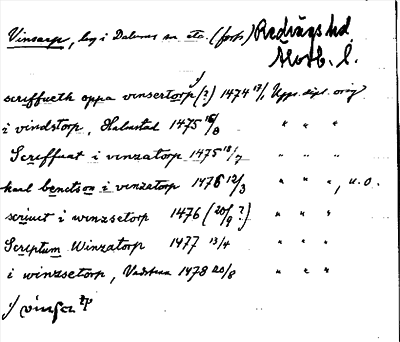 Vinsarp, by i Dalums sn etc. (forts) Redvägs hd
Älvsb. l.
scriffueth oppa vinsertorp (?) 1474 13/1 Upps. dipl. orig
i vindstorp, Halmstad 1475 16/8 " " "
Scriffuat i vinzatorp 1475 18/7 " " "
karl benctson i vinzatorp 1476 12/3 " " " , u.o.
scriuit i winzsetorp 1476 (20/9 ?) " " "
Scriptum Winzatorp 1477 13/4 " " "
i winzsetorp, Vadstena 1478 20/8 " " "
1/ vinsa tp